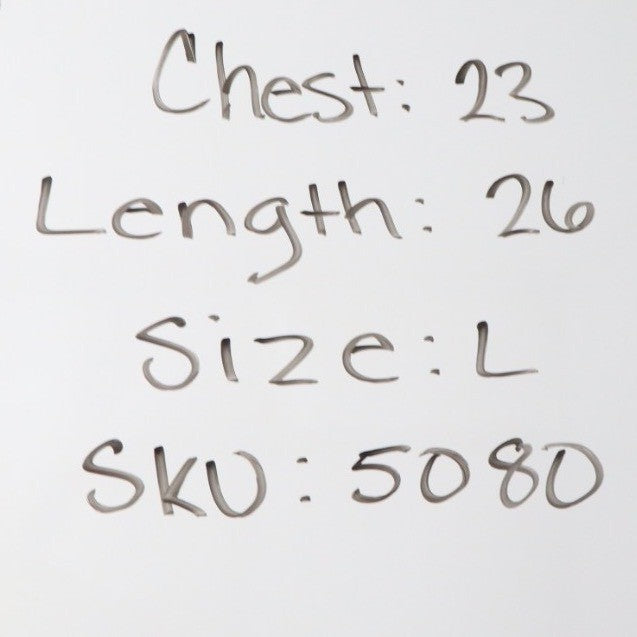 Chest: 23
Length: 26
Size: L
SKU: 5080